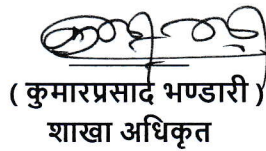 ( कुमारप्रसाद भण्डारी )
शाखा अधिकृत